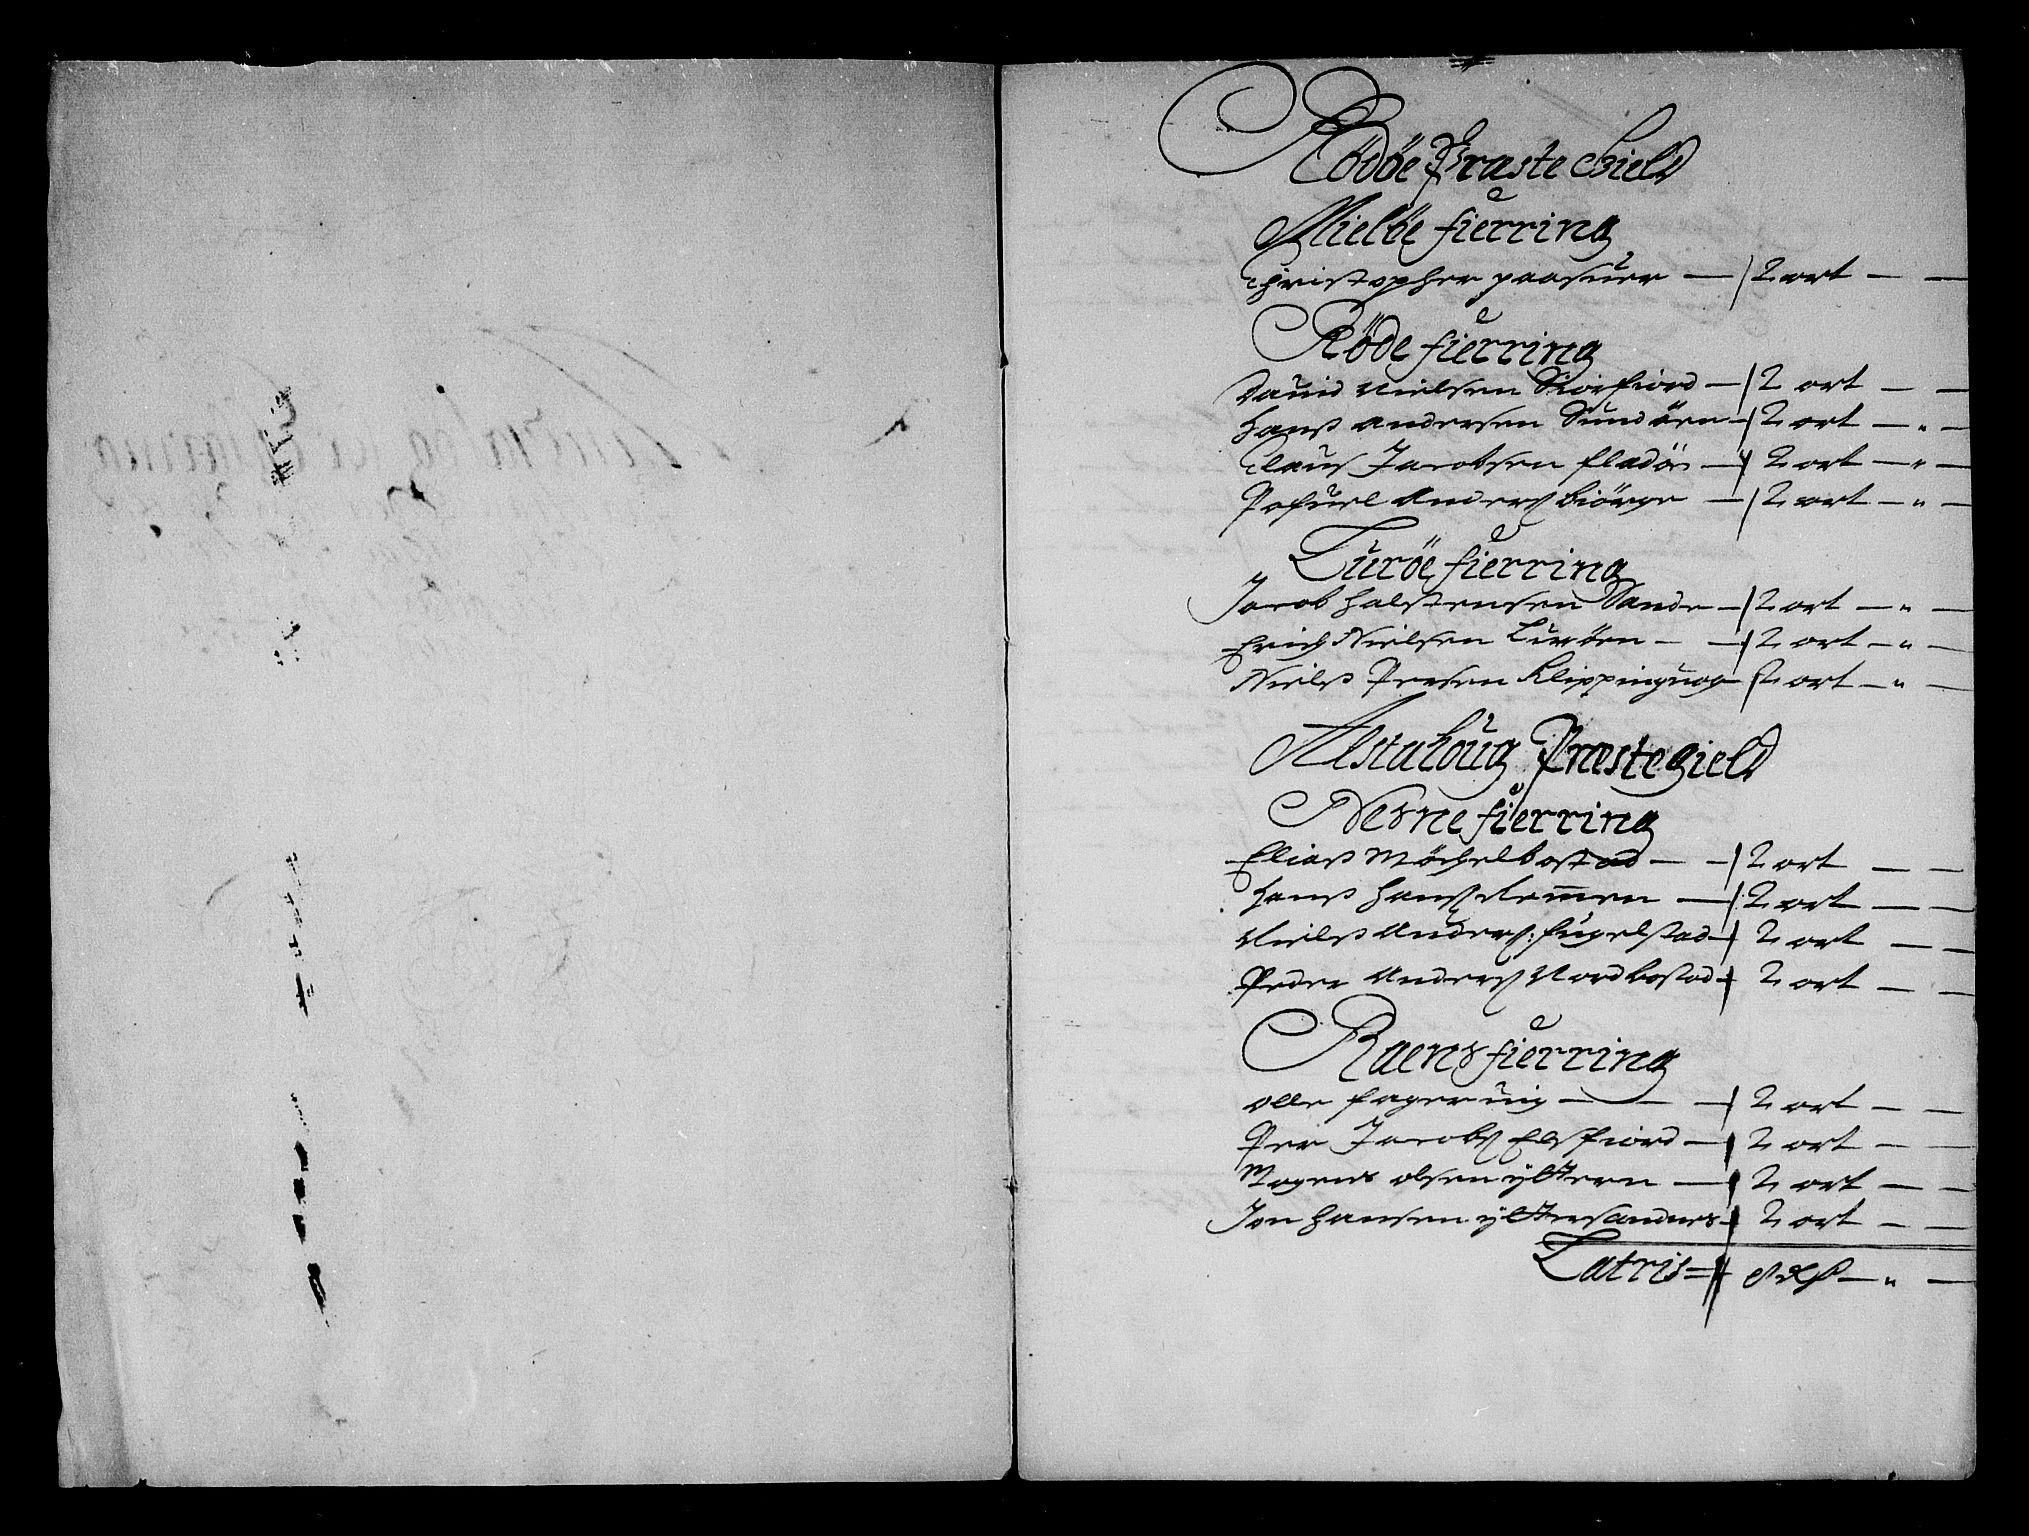 Rödöe Præste Gield
Mielöe fierring
Christopher — 2 ort — —
Röde fierring
Dauid Nielsen Storfiord — 2 ort — —
Hans Andersen Sundöen — 2 ort — " —
Claus Jacobsen fladöe — 2 ort — " —
Pofuel Anders Biörge — 2 ort — " —
Luröe fierring
Jacob Halstensen Sande — 2 ort — " —
Erich Nielsen Luröen — — 2 ort — " —
Niels Persen Klippinguog — 2 ort — " —
Alstahoug Præstegield
Nesne fierring
Elias Möchelbostad — — 2 ort — —
Hans Hans Remmen — 2 ort — —
Niels Anders: fugelstad — 2 ort — —
Peder Anders Nordbostad — 2 ort — —
Raens fierring
Olle fageruig — — — 2 ort — —
Per Jacobs Elsfiord — 2 ort — —
Mogens olsen ytteren — 2 ort — —
Jon Hansen yttersandnes — 2 ort — —
Latris = 8 — " —